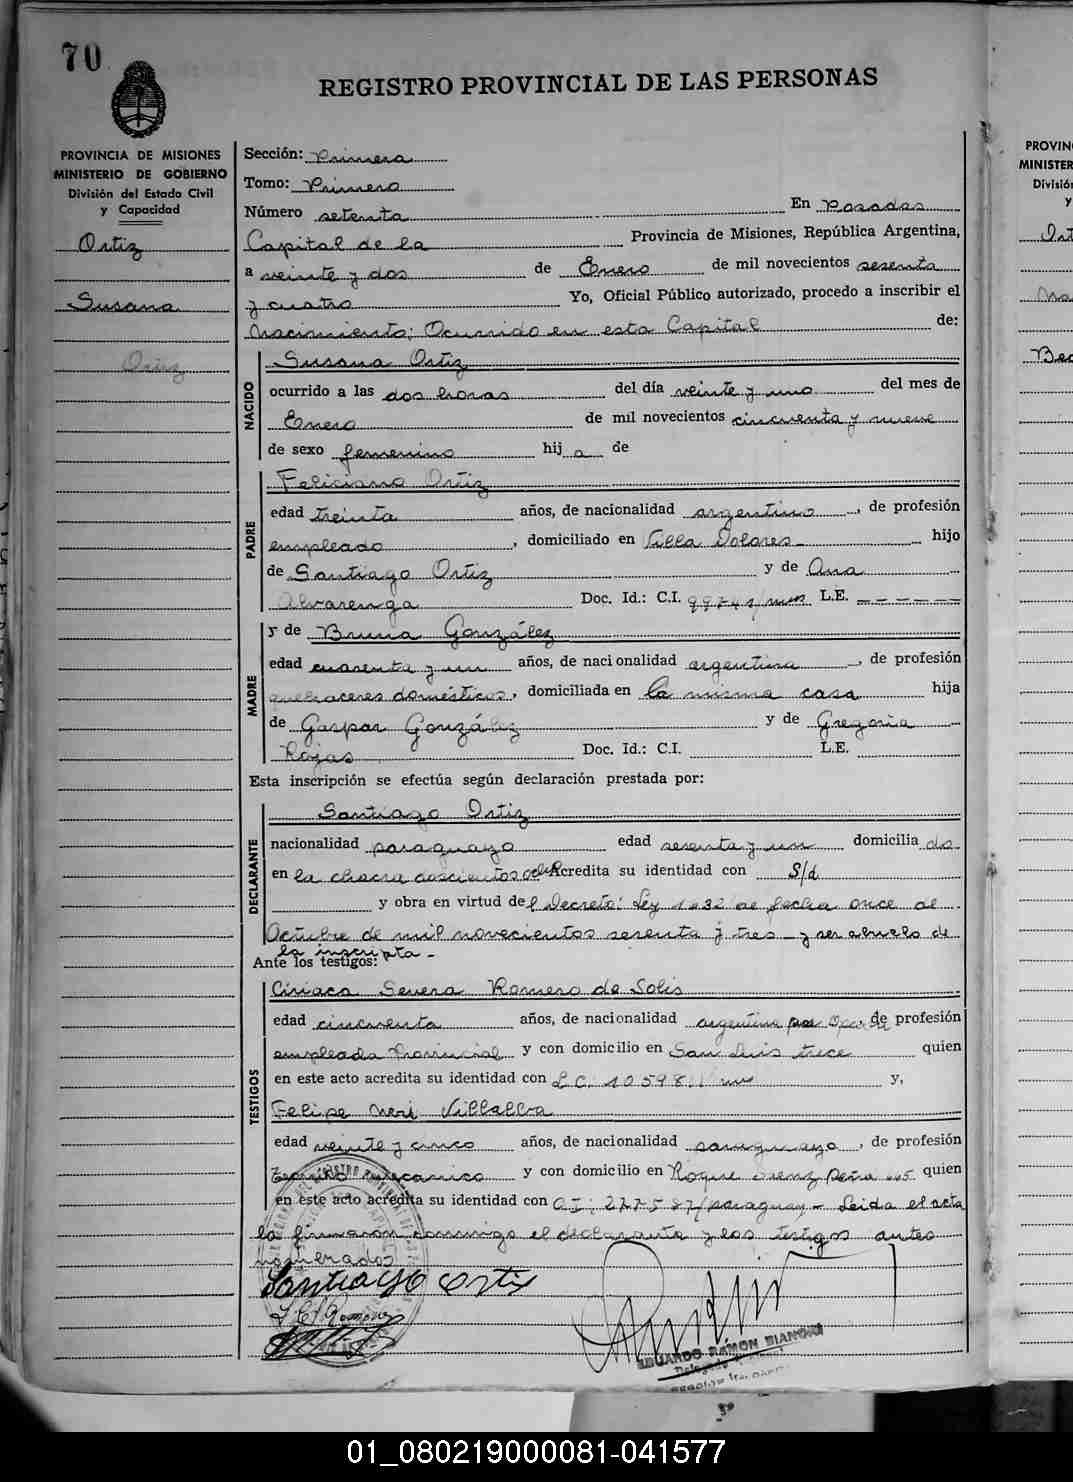 70
REGISTRO PROVINCIAL DE LAS PERSONAS
PROVINCIA DE MISIONES
MINISTERIO DE GOBIERNO
División del Estado Civil
y Capacidad
Ortiz
Susana
Ortiz
Sección: Primera
Tomo: Primero
Número setenta En Posadas
Capital de la Provincia de Misiones, República Argentina,
a veinte y dos de Enero de mil novecientos sesenta
y cuatro Yo, Oficial Público autorizado, procedo a inscribir el
Nacimiento; Ocurrido en esta Capital de:
NACIDO
Susana Ortiz
ocurrido a las dos horas del día veinte y uno del mes de
Enero de mil novecientos cincuenta y nueve
de sexo femenino hij a de
PADRE
Feliciano Ortiz
edad treinta años, de nacionalidad argentino, de profesión
empleado, domiciliado en Villa Dolores hijo
de Santiago Ortiz y de Ana
Alvarenga Doc. Id.: C.I. L.E.
MADRE
y de Bruna González
edad cuarenta y un años, de nacionalidad argentina, de profesión
quehaceres domésticos, domiciliada en la misma casa hija
de Gaspar González y de Gregoria
Rojas Doc. Id.: C.I. L.E.
Esta inscripción se efectúa según declaración prestada por:
DECLARANTE
Santiago Ortiz
nacionalidad paraguayo edad sesenta y un domicilia do
en la chacra doscientos Acredita su identidad con S/d
y obra en virtud del Decreto: Ley de fecha once de
Octubre de mil novecientos sesenta y tres y ser abuelo de
la inscripta -
Ante los testigos:
TESTIGOS
Ciriaca Severa Romero de Solis
edad cincuenta años, de nacionalidad argentina de profesión
empleada Provincial y con domicilio en San Luis trece quien
en este acto acredita su identidad con L.C. y,
Felipe Neri Villalba
edad veinte y cinco años, de nacionalidad paraguayo, de profesión
mecanico y con domicilio en Roque Saenz Peña quien
en este acto acredita su identidad con C.I: paraguay - Leida el acta
la firmaron conmigo el declarante y los testigos antes
nombrados
Santiago Ortiz
EDUARDO RAMON BIANCHI
PROVIN
MINISTER
Divisió
y
01_080219000081-041577